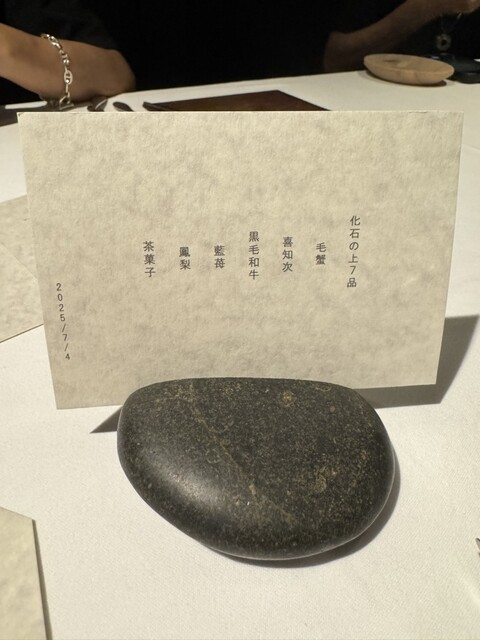 化石の上7品
毛蟹
喜知次
黒毛和牛
藍苺
鳳梨
茶菓子
2025/7/4